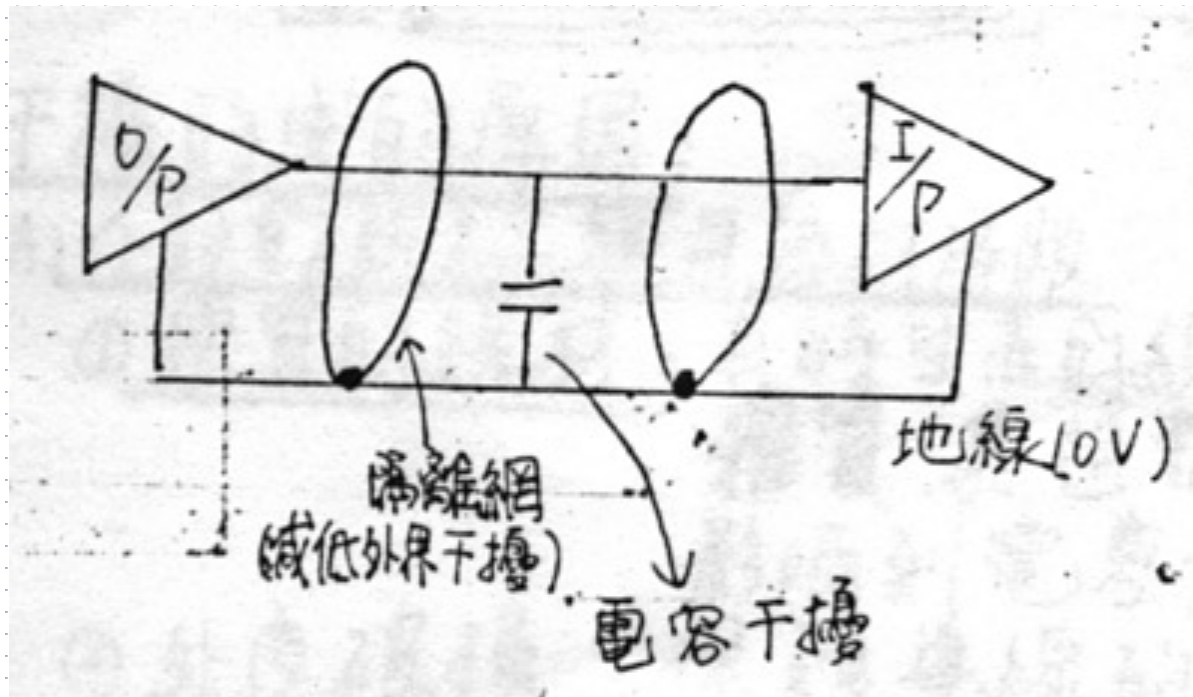 O/P
I/P
地線(0V)
隔離網
(減低外界干擾)
電容干擾